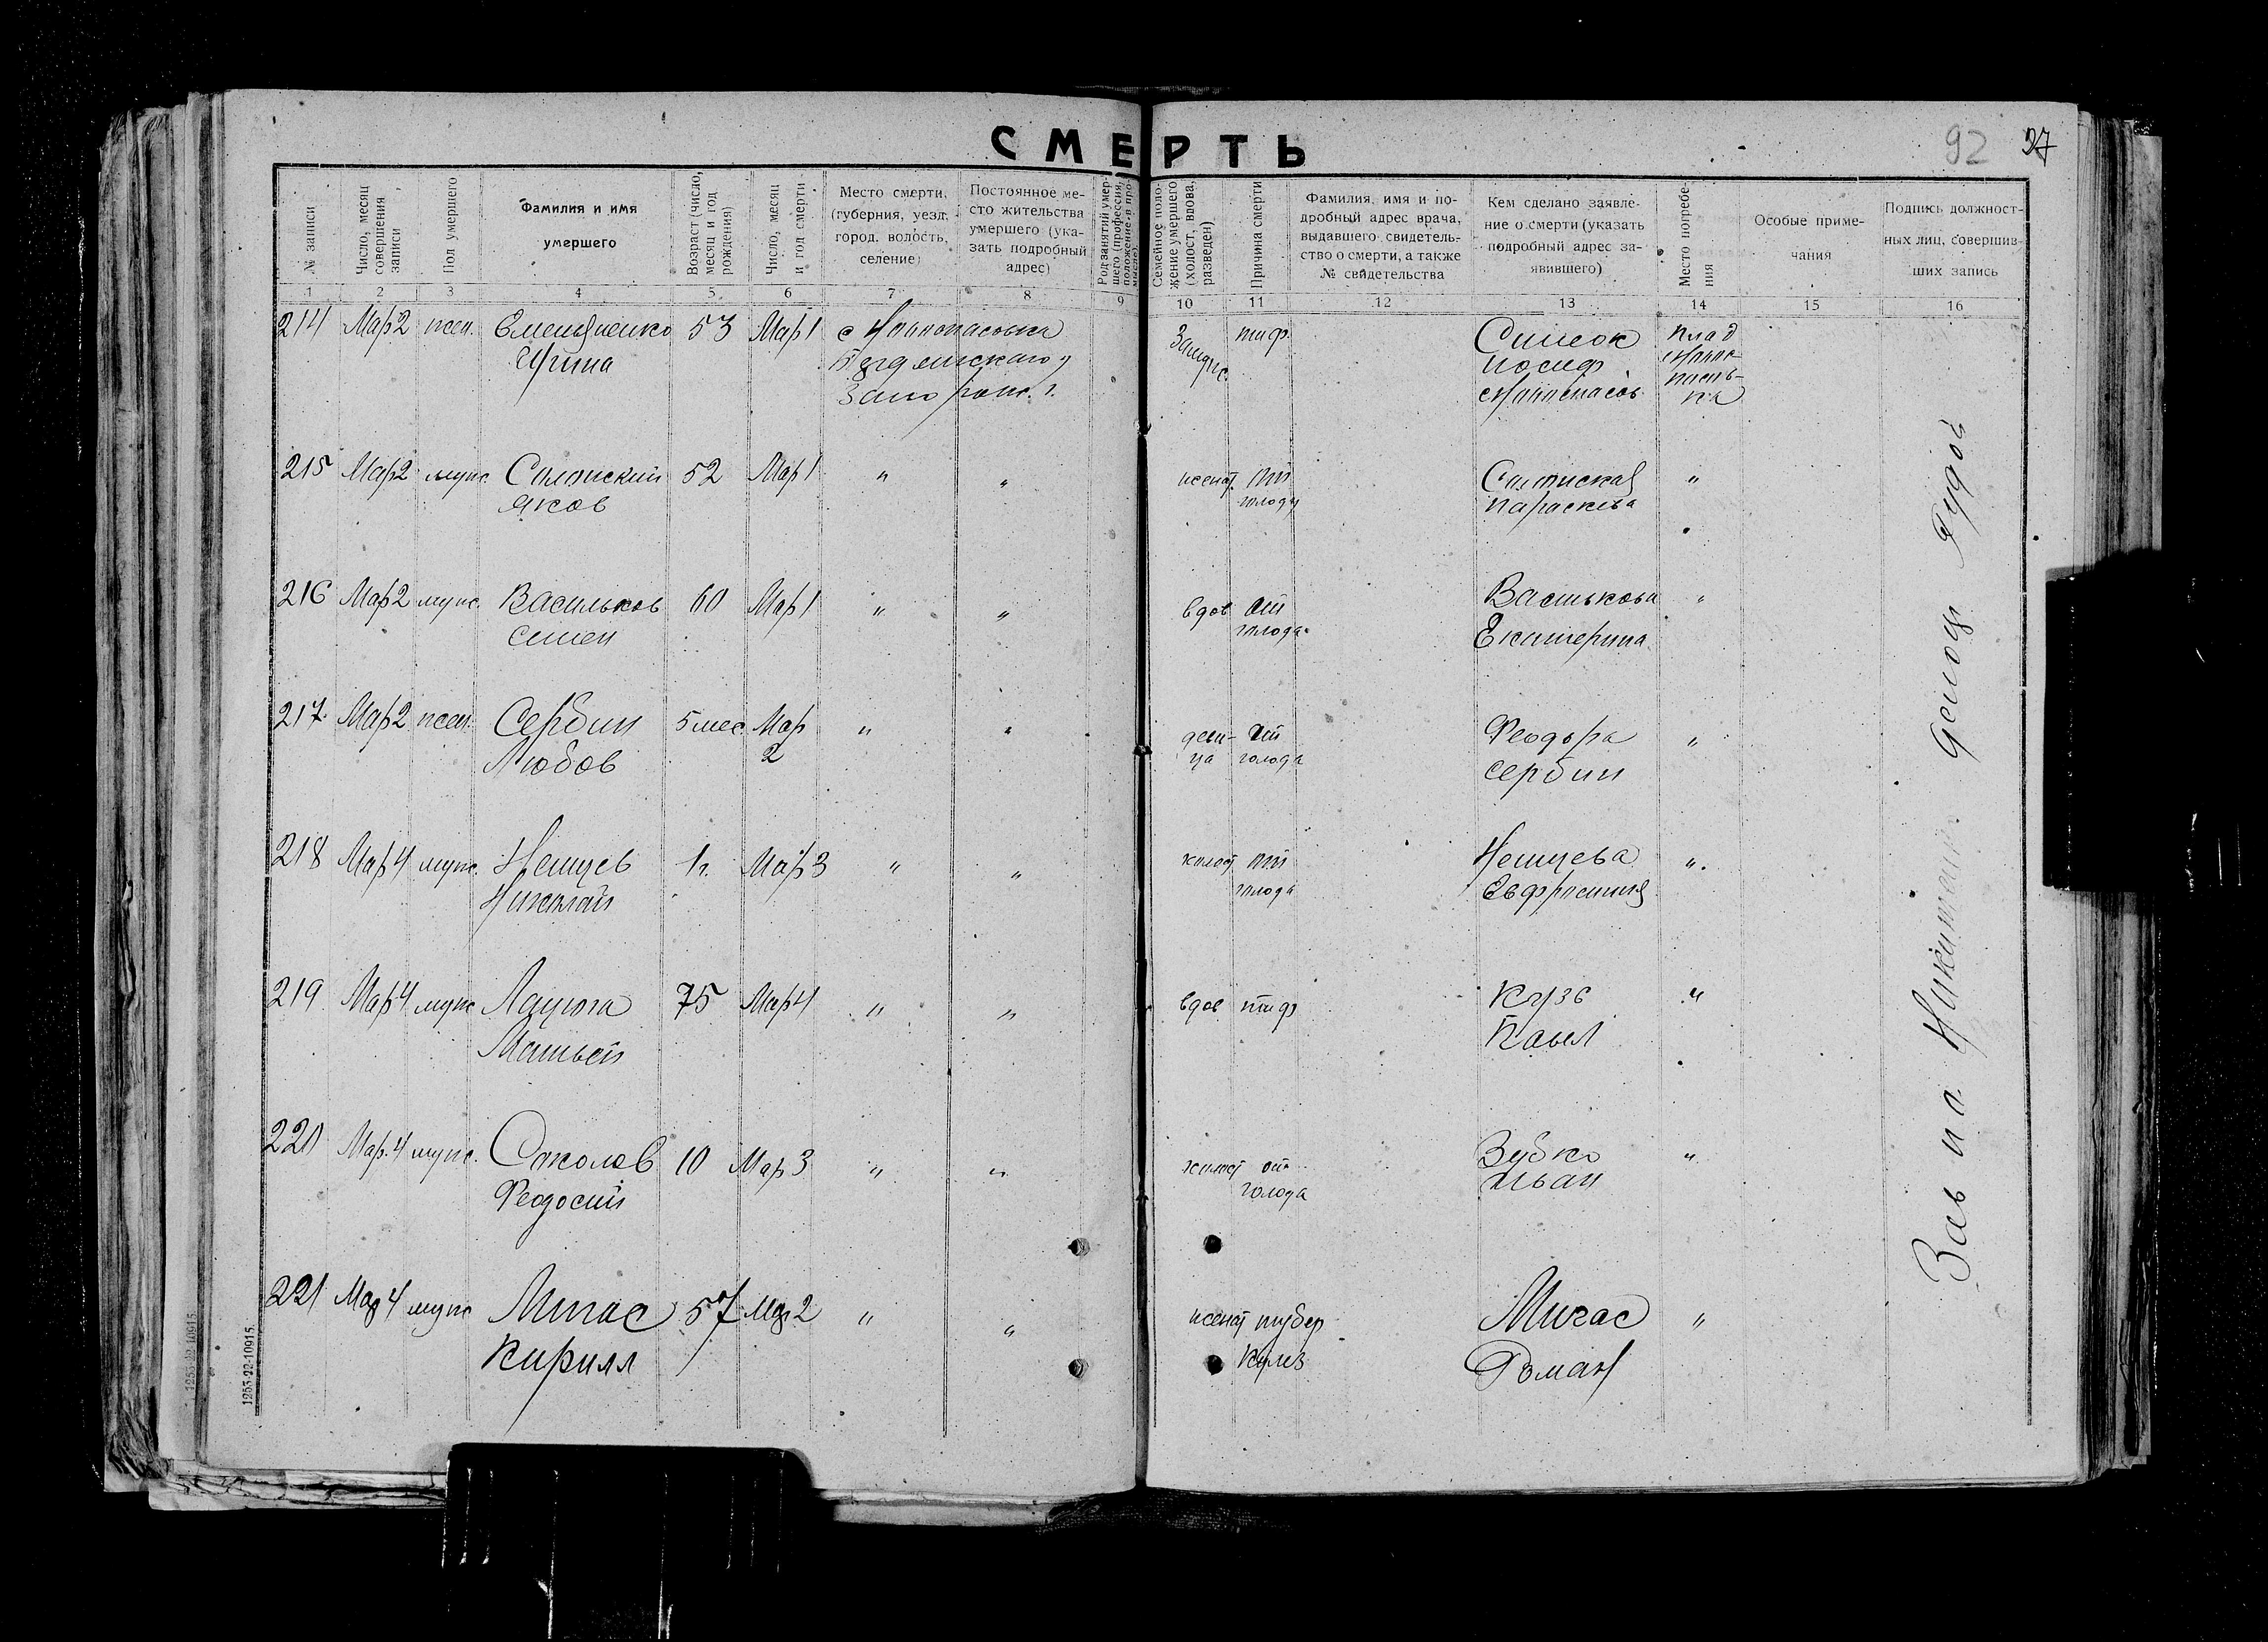 СМЕРТЬ
92 97
№ записи
Число, месяц совершения записи
Пол умершего
Фамилия и имя
умершего
Возраст (число, месяц и год рождения)
Число, месяц и год смерти
Место смерти,
(губерния, уезд,
город, волость,
селение)
Постоянное ме-
сто жительства
умершего (ука-
зать подробный
адрес)
Род занятий умер-
шего (профессия,
положение в про-
мысле).
Семейное поло-
жение умершего
(холост, вдова,
разведен)
Причина смерти
Фамилия, имя и по-
дробный адрес врача,
выдавшего свидетель-
ство о смерти, а также
№ свидетельства
Кем сделано заявле-
ние о смерти (указать
подробный адрес за-
явившего)
Место погребе-
ния
Особые приме-
чания
Подпись должност-
ных лиц, совершив-
ших запись
1 2 3 4 5 6 7 8 9 10 11 12 13 14 15 16
214 Мар 2 жен. Емельяненко 53 Мар 1 с Новоспасовка замуж. тиф.
Ирина Бердянского у
Запорож. г.
Иосиф
215 Мар 2 муж. 52 Мар 1 " " женат от
Яков голоду Параскева "
216 Мар 2 муж. Васильков 60 Мар 1 " " вдов от Василькова "
Семен голода Екатерина
217 Мар 2 жен. Сербин 5 мес. Мар " " деви- от Феодора "
Любов 2 ца голода Сербин
218 Мар 4 муж. Немцев 1 г. Мар 3 " " холост от Немцева "
Николай голода Евфросиния
219 Мар 4 муж 75 Мар 4 " " вдов тиф "
Матвей Павел
220 Мар. 4 муж. Соколов 10 Мар 3 " " холост от Зубко "
Феодосий голода Иван
221 Мар 4 муж Мигас 57 Мар 2 " " женат тубер Мигас "
Кирилл кулез Роман
Зав
1253-22-10915.
1253-22-10915.